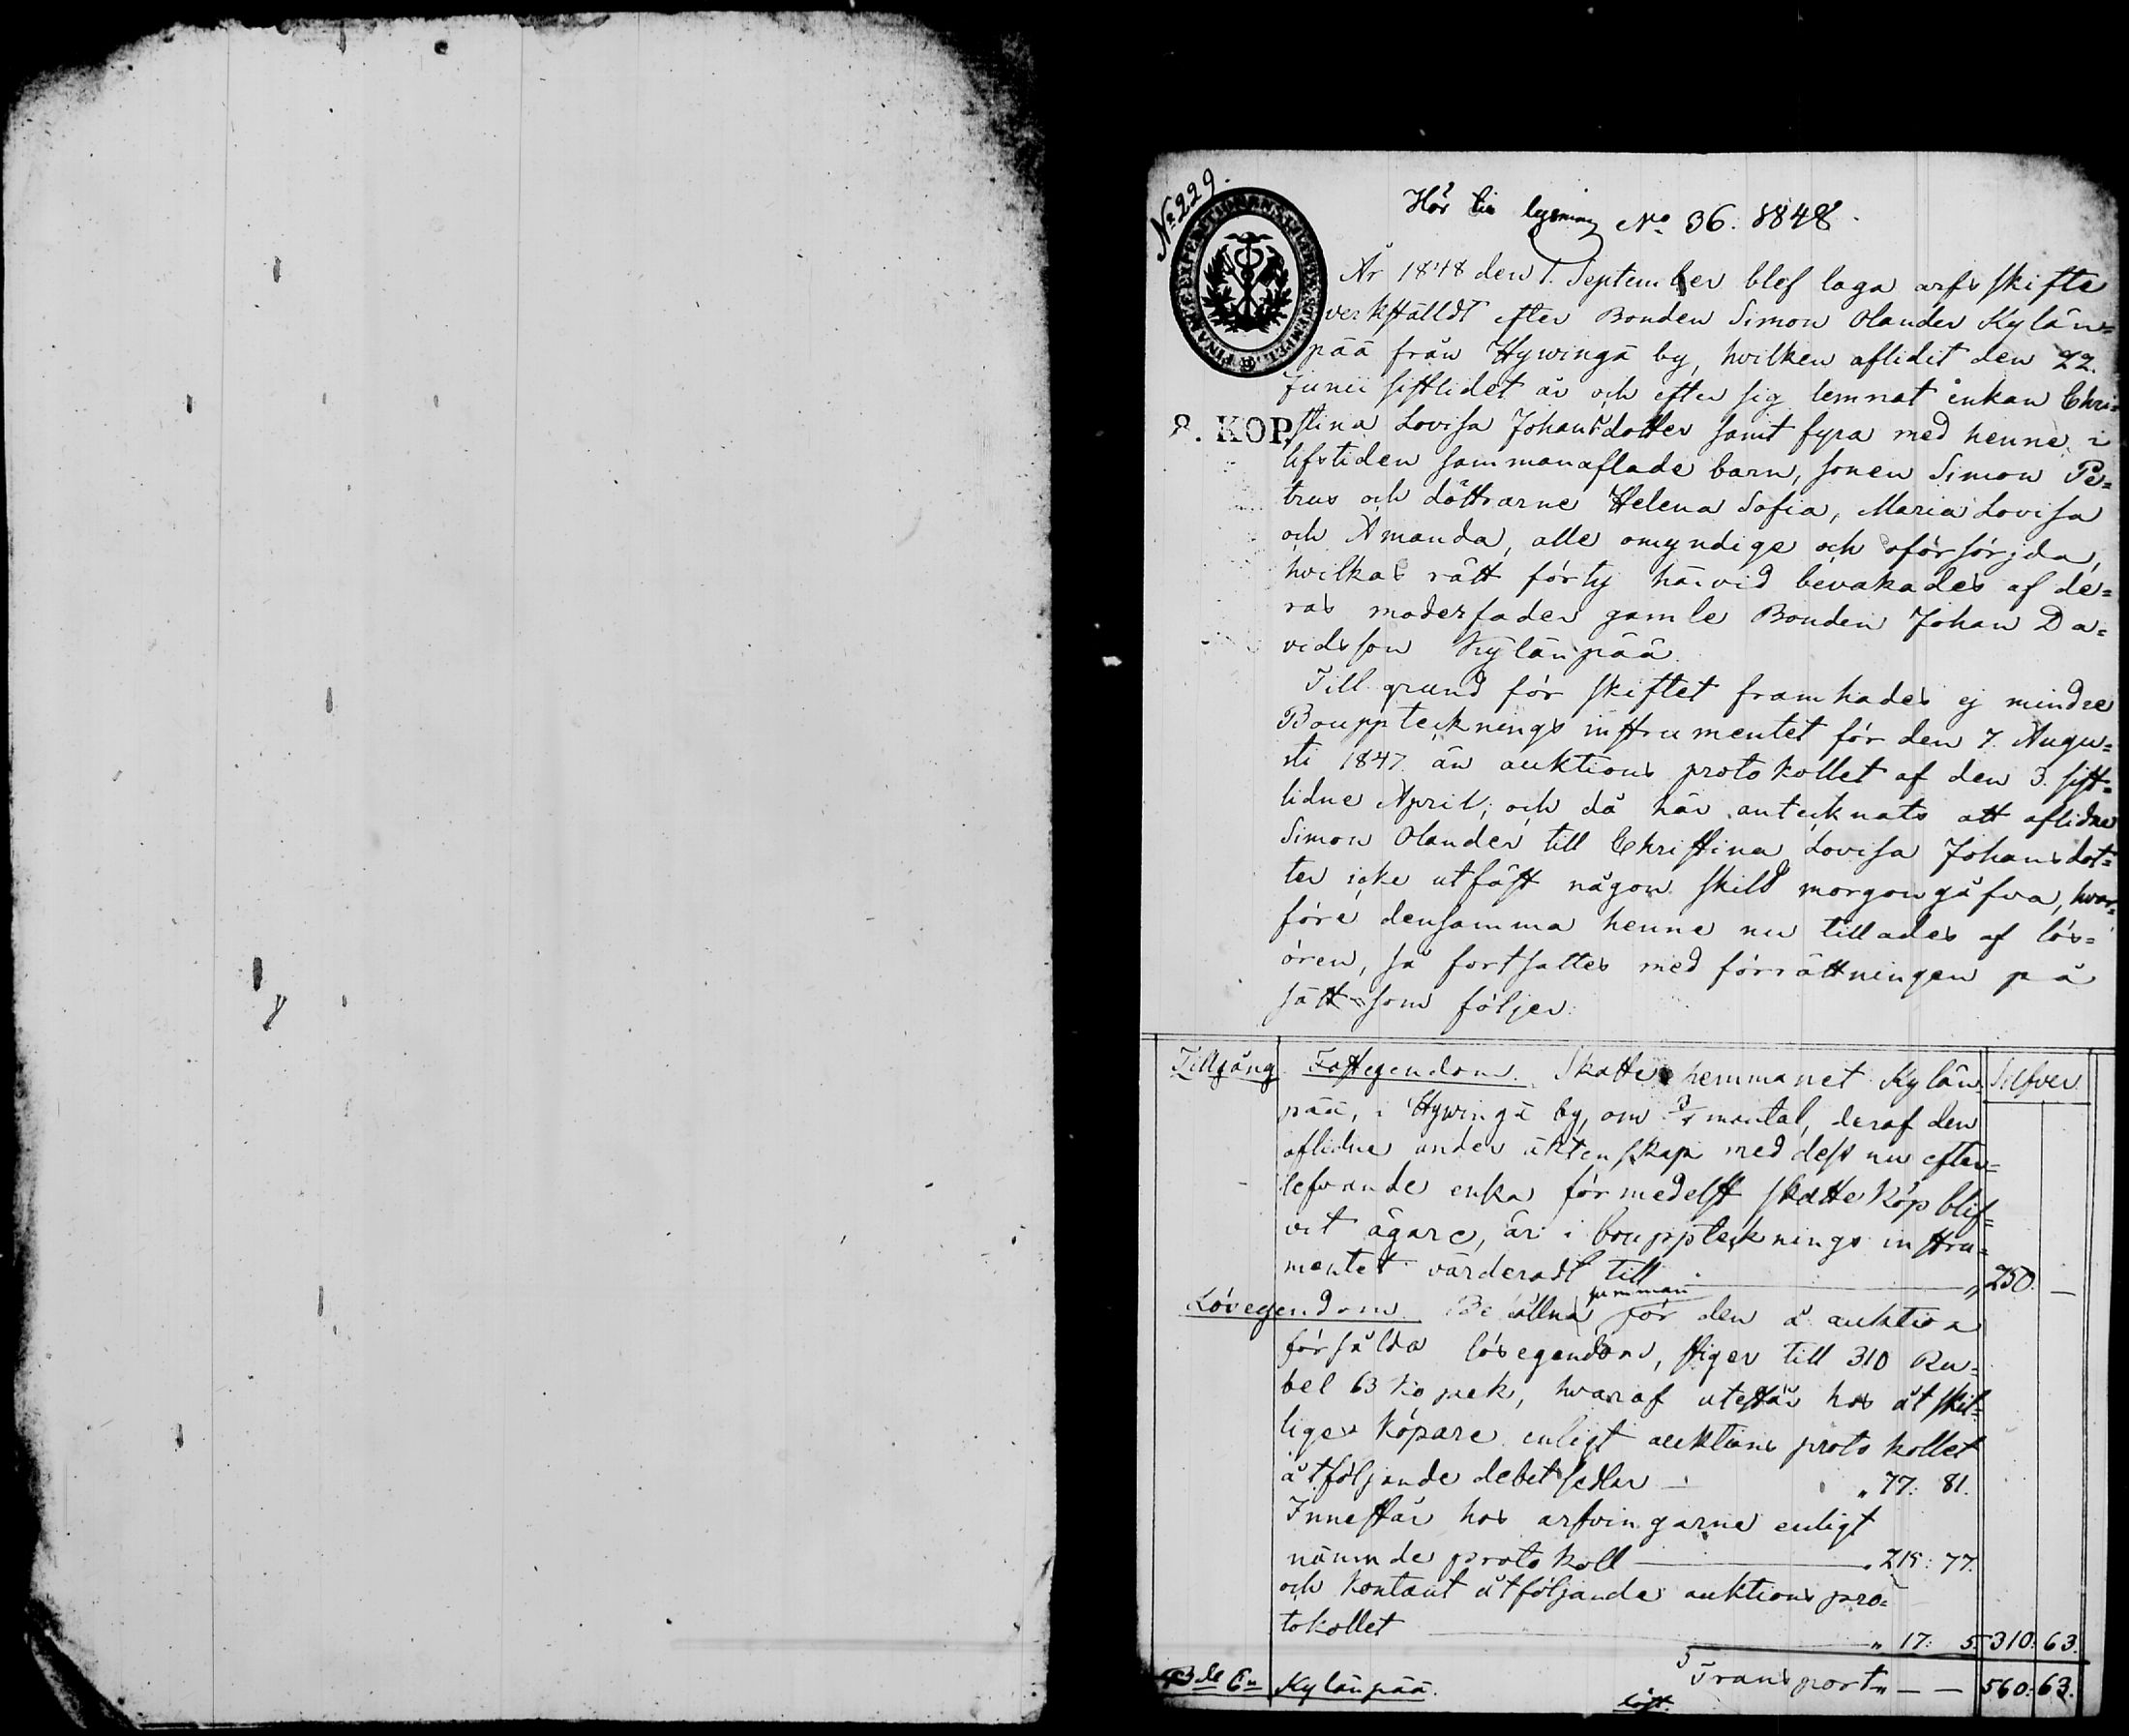 No 229.
Hör till lysning No 36. 1848.
År 1848 den 1. September blef laga arfs skifte
verkställdt efter Bonden Simon Olander Kylän=
pää från Hywingä by, hvilken aflidit den 22.
Junii sistlidet år och efter sig lemnat enkan Chri=
8. KOP.
stina Lovisa Johansdotter samt fyra med henne i
lifstiden sammanaflade barn, sonen Simon Pe=
trus och döttrarne Helena Sofia, Maria Lovisa
och Amanda, alle omyndige och oförsörjda,
hvilkas rätt förty härvid bevakades af de=
ras moderfader gamle Bonden Johan Da=
vidsson Kylänpää.
Till grund för skiftet framhades ej mindre
Bouppteknings instrumentet för den 7. Augu=
sti 1847 än auktions protokollet af den 3. sist=
lidne April; och då här antecknats att aflidne
Simon Olander till Christina Lovisa Johansdot=
ter icke utfäst någon skild morgongåfva, hvar=
före densamma henne nu tillades af lös=
ören, så fortsattes med förrättningen på
sätt som följer:
Tillgång Fastegendom. Skatte hemmanet Kylän Silfver.
pää, i Hywingä by, om mantal, deraf den
aflidne under äktenskap med dess nu efter=
lefvande enka förmedelst skatte köp blif=
vit ägare, är i bouppteknings instru=
mentet värderadt till " 250. —
Lösegendom. summan för den å auktion
försålda lösegendom, stiger till 310 Ru=
bel 63 kopek, hvaraf utestår hos åtskil=
lige köpare enligt auktions protokollet
åtföljande debetsedlar — " 77: 81.
Innestår hos arfvingarne enligt
nämnde protokoll — " 215: 77.
och kontant åtföljande auktions pro=
tokollet — " 17: 5. 310: 63.
Transport " — — 560: 63.
Kylänpää.